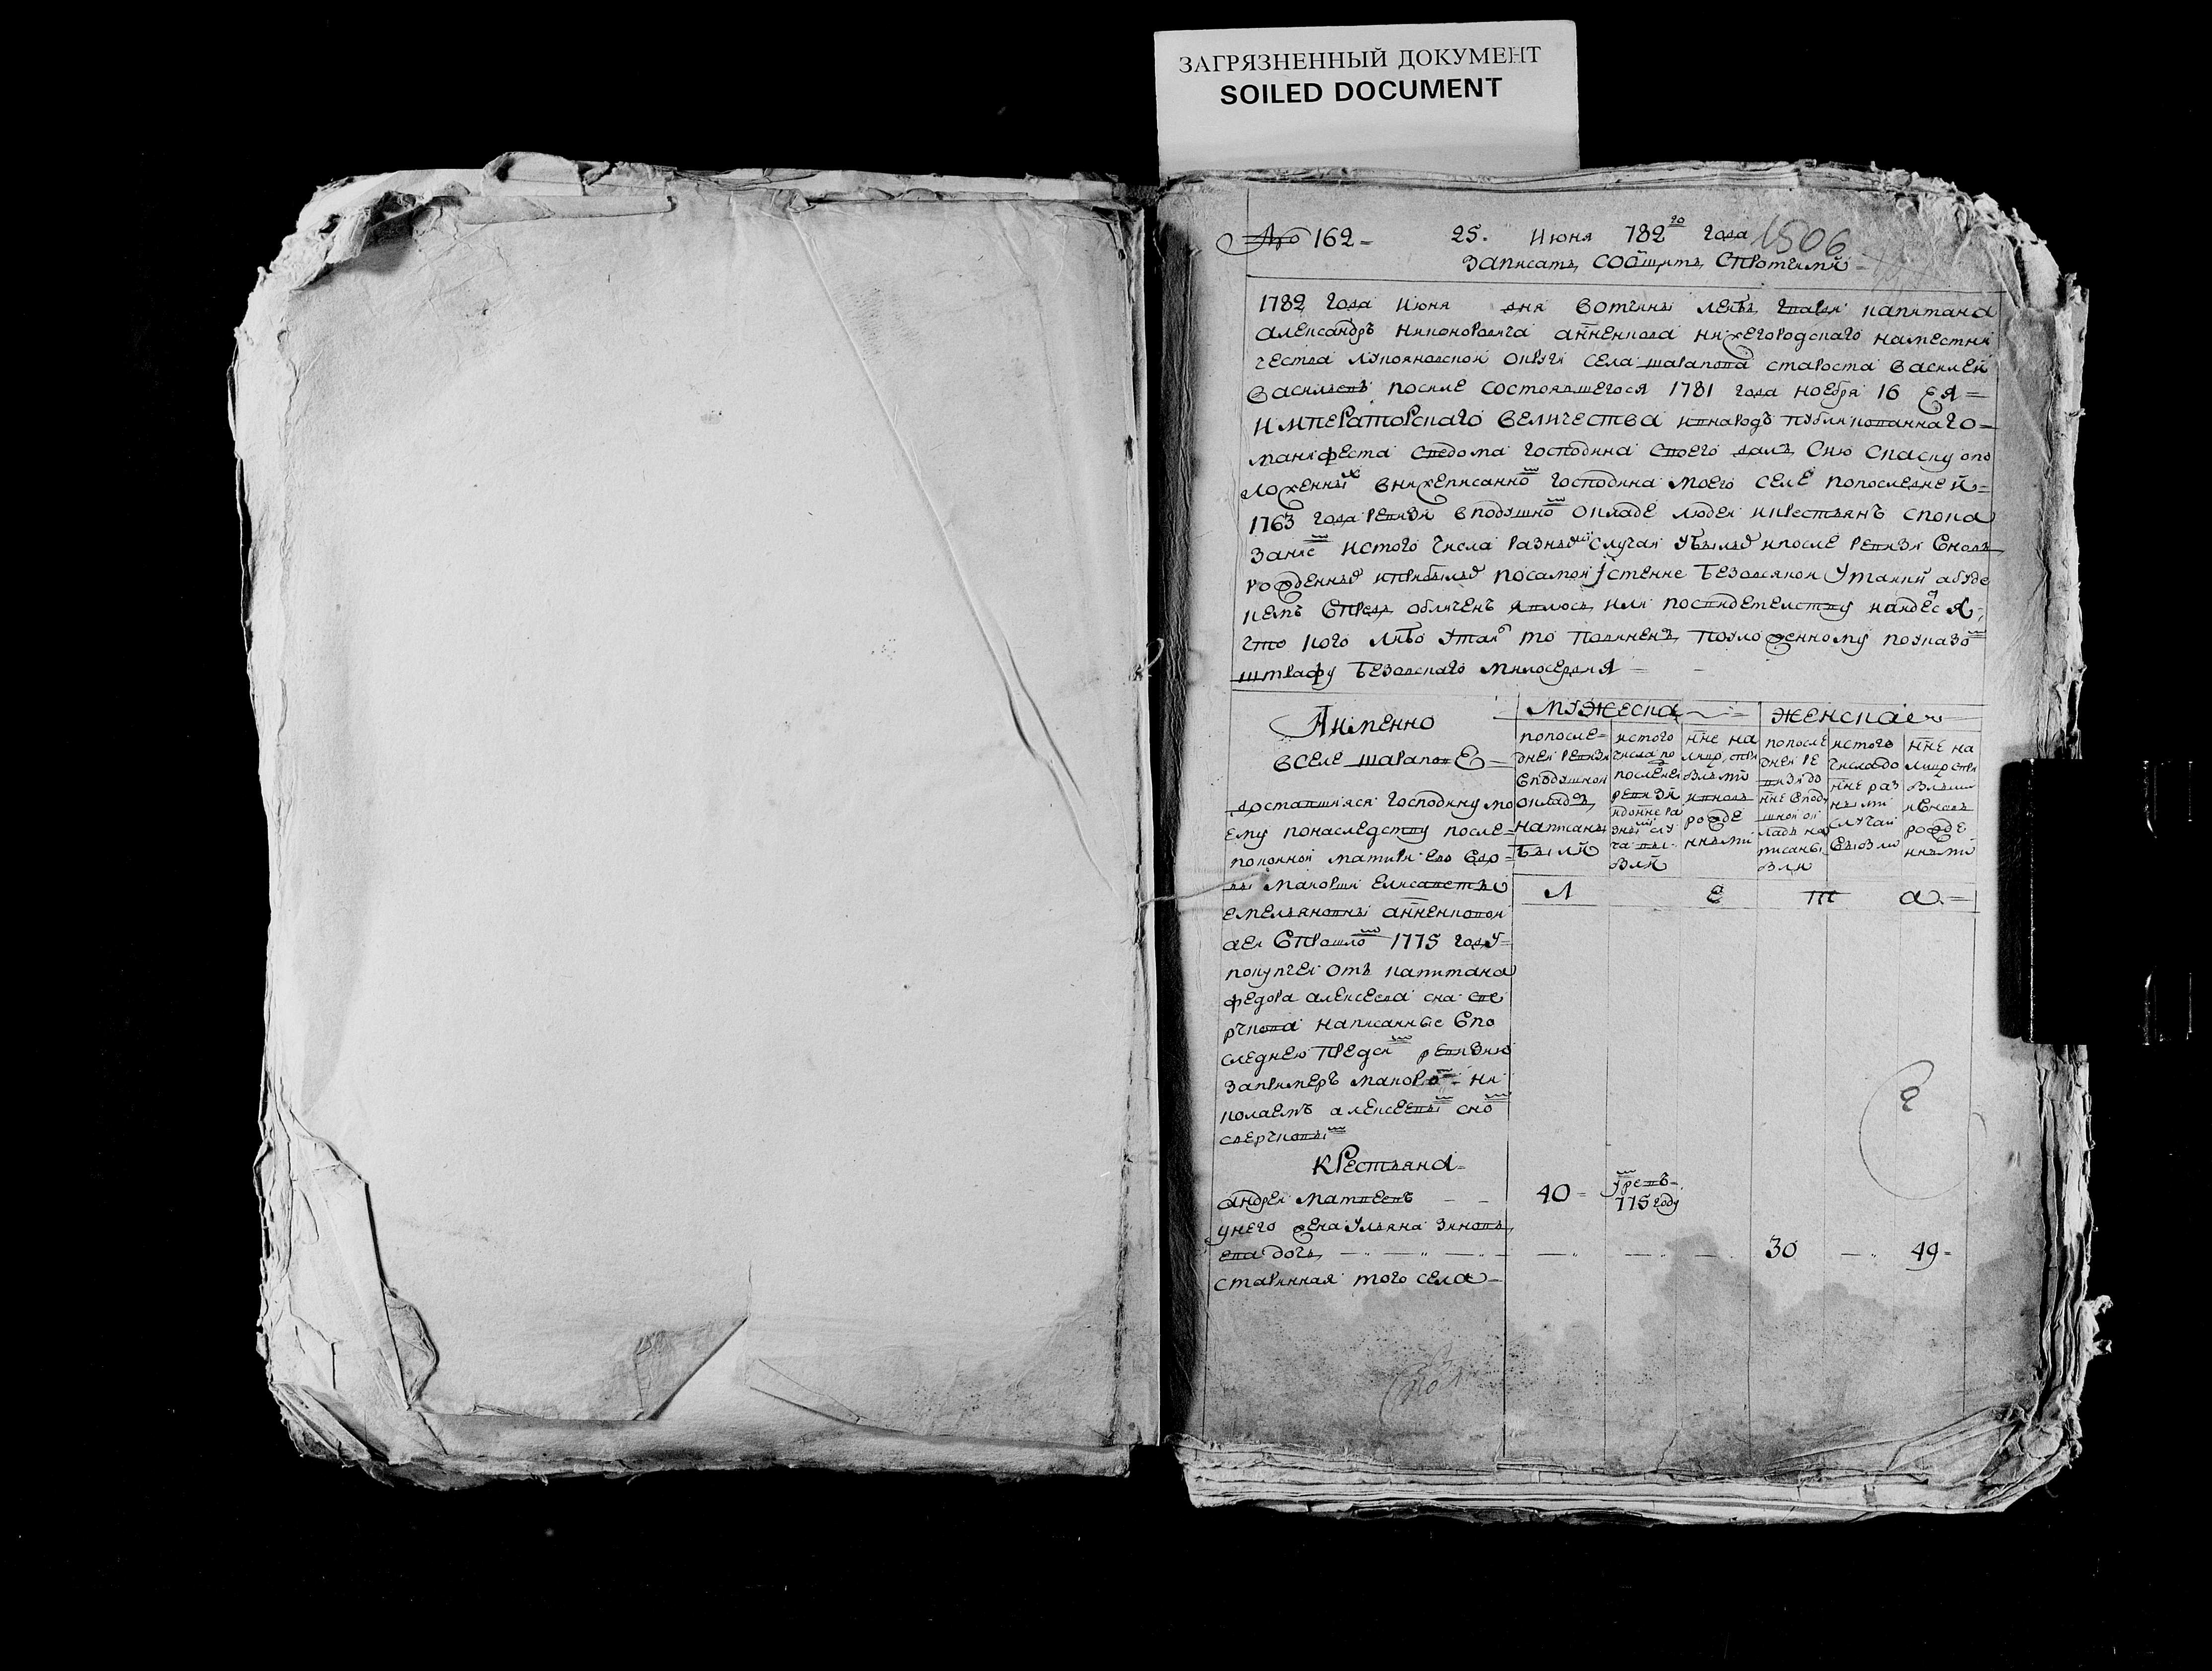 ЗАГРЯЗНЕННЫЙ ДОКУМЕНТ
SOILED DOCUMENT
№ 162 = 25. Июня 782го года 1506
Записать сообщить спротчими
1782 года июня дня вотчины лейбъ гвардии капитана
александръ никоноровича анненкова нижегородского наместни
чества лукояновской округи села шарапова староста василей
васильевъ после состоявшегося 1781 года ноебря 16 ея =
императорского величества внародъ публикованнаго =
манифеста сведома господина своего далъ сию скаску опо
ложенныхъ внижеписанномъ господина моего селе попоследней =
1763 года ревизи вподушномъ окладе людей икрестьянъ спока
заниемъ истого числа разными случаи убылыхъ ипосле ревизи вновь
рожденныхъ иприбылыхъ посамой истенне безовсякой утайки абуде
кемъ впредь обличенъ явлюсь или посвидетелству найдется
что кого либо утаилъ то повиненъ положенному поуказомъ
штрафу безовсякого милосердия =
Аимянно
вселе шарапове
доставшияся господину мо
ему понаследству после =
покойной матири ево вдо =
вы маиорши елисаветы
емельяновны анненковой
аей впрошломъ 1775 году =
покупчей отъ капитана
федора алексеева сна све
рчкова написанные впо
следнею предсимъ ревизию
запримеръ маиоромъ ни
колаемъ алексеевымъ сномъ
сверчковымъ
мужеска
женска
попосле =
дней ревизи
вподушной
окладъ
написаны
были
истого
числа по
после
ревизи
идонне ра
зными слу
чаи вы
были
нне на
лицо спри
былыми
ивновь
рожде
нными
попосле
дней ре
визи до
нне впод
ушной ок
ладъ на
писаны
были
истого
числа до
нне раз
ными
случаи
выбыли
нне на
лицо спри
былыми
ивновь
рожде
нными
Л Е Т А =
Крестьяна =
андрей матвеевъ 40 = умре въ
775 году
унего жена ульяна зиновь
ева дочь 30 49 =
старинная того села =